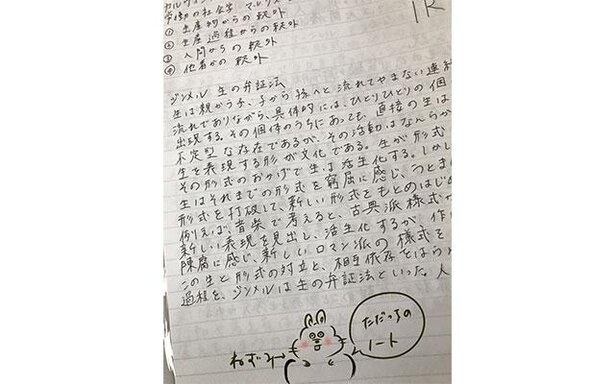 労働の社会学 マルクス
① 生産物からの疎外
② 生産過程からの疎外
③ 人間からの疎外
④ 他者からの疎外
ジンメル 生の弁証法
生は親から子、子から孫へと流れてやまない連続
流れでありながら、具体的には、ひとりひとりの個
出現する。その個体のうちにあっても、直接の生は
不定型な存在であるが、その活動はなんらか
生を表現する形が文化である。生が形式
その形式のおかげで生は活生化する。しかし
生はそれまでの形式を窮屈に感じ、うとま
形式を打破して、新しい形式をもとめはじめ
例えば、音楽で考えると、古典派様式
新しい表現を見出し、活生化するが、作
陳腐に感じ、新しいロマン派の様式を
この生と形式の対立と、相互依存をはらん
過程を、ジンメルは生の弁証法といった。人
ねずみ→
ただっちの
ノート